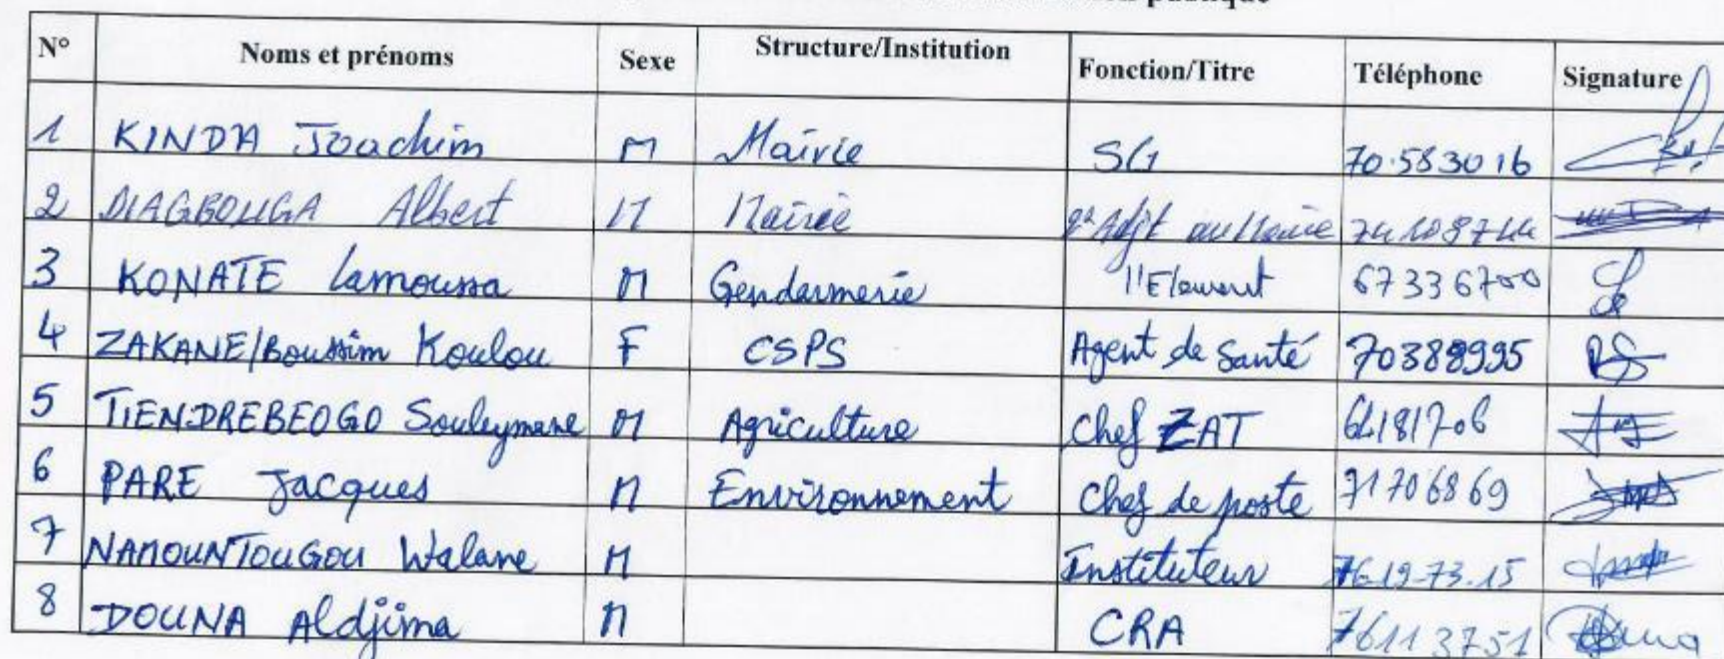 publique
N° Noms et prénoms Sexe Structure/Institution Fonction/Titre Téléphone Signature
1 KINDA Joachim M Mairie SG 70.583016
2 DIAGBOUGA Albert M Mairie 2e Adjt au Maire 74108744
3 KONATE Lamoussa M Gendarmerie 67336700
4 ZAKANE/Boussim Koulou F CSPS Agent de Santé 70388995
5 TIENDREBEOGO Souleymane M Agriculture Chef ZAT 64181706
6 PARE Jacques M Environnement Chef de poste 71706869
7 NAMOUNTOUGOU Walane M Instituteur 76.19.73.15
8 DOUNA Aldjima M CRA 76113751